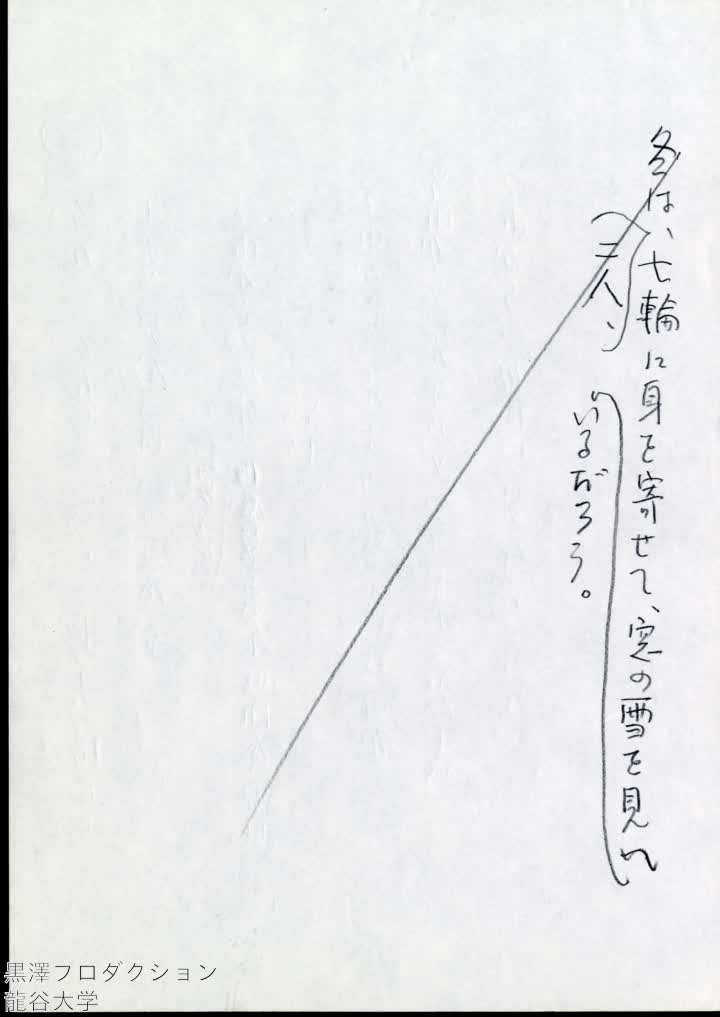 冬は、七輪に身を寄せて、窓の雪を見て
二人、
いるだろう。
黒澤フロダクション
龍谷大学